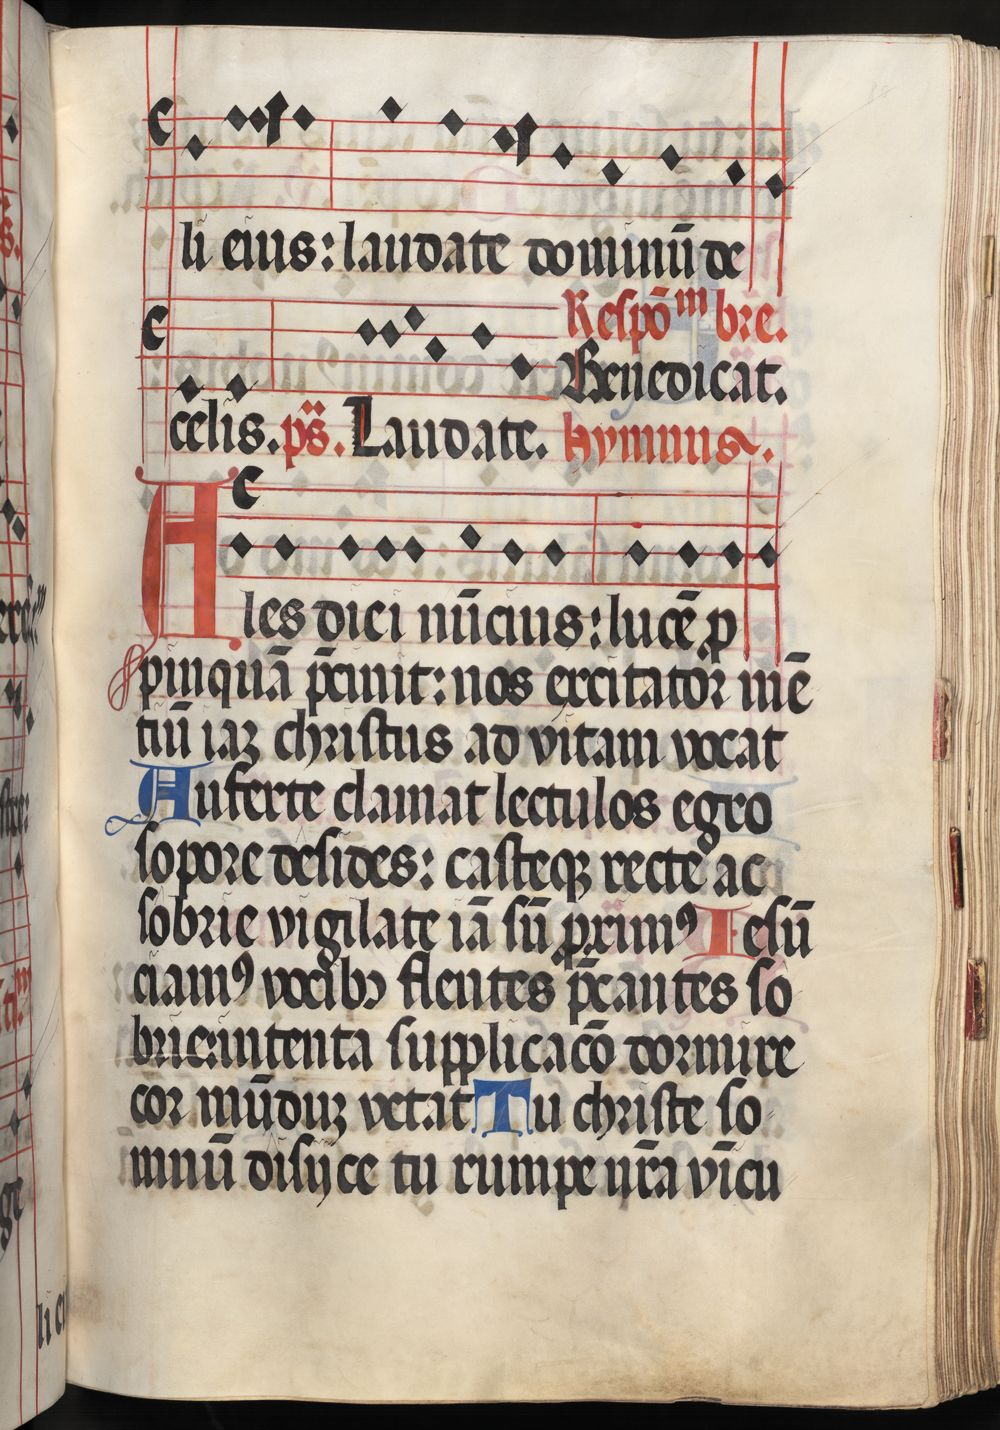 li eius: laudate dominū de
Respōm bre.
Benedicat.
celis. ps̄. Laudate. hymnus.
Ales diei nūcius: lucē p
pinquā p̄cinit: nos excitator mē
tiū iaꝫ christus ad vitam vocat
Auferte clamat lectulos egro
sopore desides: casteqꝫ recte ac
sobrie vigilate iā sū proximꝰ Iesū
ciamꝰ vocibꝫ flentes p̄cantes so
brie: intenta supplicacō dormire
cor mūduꝫ vetat Tu christe so
mnū disijce tu rumpe nr̄a vīcu